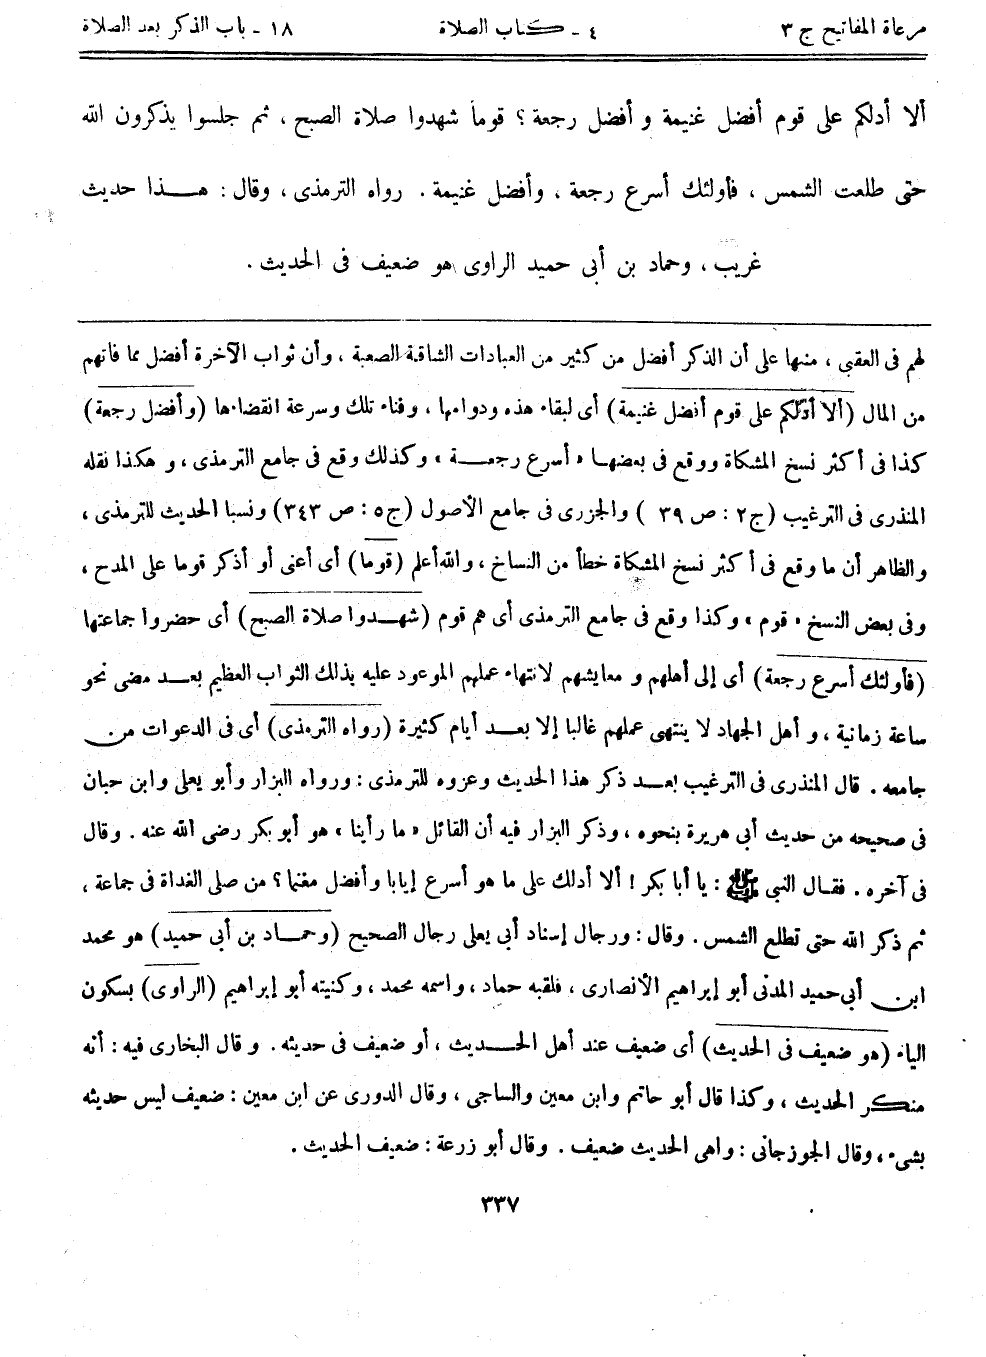 مرعاة المفاتيح ج ٣
٤ - كتاب الصلاة
١٨ - باب الذكر بعد الصلاة
ألا أدلكم على قوم أفضل غنيمة و أفضل رجعة ؟ قوماً شهدوا صلاة الصبح ، ثم جلسوا يذكرون الله
حتى طلعت الشمس ، فأولئك أسرع رجعة ، وأفضل غنيمة . رواه الترمذى ، وقال : هذا حديث
غريب ، وحماد بن أبى حميد الراوى هو ضعيف فى الحديث .
لهم فى العقبى ، منها على أن الذكر أفضل من كثير من العبادات الشاقة الصعبة ، وأن ثواب الآخرة أفضل مما فاتهم
من المال (ألا أدلكم على قوم أفضل غنيمة) أى لبقاء هذه ودوامها ، وفناء تلك وسرعة انقضاءها (وأفضل رجعة)
كذا فى أكثر نسخ المشكاة ووقع فى بعضها « أسرع رجعة » وكذلك وقع فى جامع الترمذى ، و هكذا نقله
المنذرى فى الترغيب (ج٢ : ص ٣٩ ) والجزرى فى جامع الأصول (ج٥ : ص ٣٤٣) ونسبا الحديث للترمذى ،
والظاهر أن ما وقع فى أكثر نسخ المشكاة خطأ من النساخ ، والله أعلم (قوما) أى أعنى أو أذكر قوما على المدح ،
وفى بعض النسخ « قوم » وكذا وقع فى جامع الترمذى أى هم قوم (شهدوا صلاة الصبح) أى حضروا جماعتها
(فأولئك أسرع رجعة) أى إلى أهلهم و معايشهم لانتهاء عملهم الموعود عليه بذلك الثواب العظيم بعد مضى نحو
ساعة زمانية ، و أهل الجهاد لا ينتهى عملهم غالبا إلا بعد أيام كثيرة (رواه الترمذى) أى فى الدعوات من
جامعه . قال المنذرى فى الترغيب بعد ذكر هذا الحديث وعزوه للترمذى : ورواه البزار وأبو يعلى وابن حبان
فى صحيحه من حديث أبى هريرة بنحوه ، وذكر البزار فيه أن القائل « ما رأينا » هو أبو بكر رضى الله عنه . وقال
فى آخره . فقال النبى ﷺ : يا أبا بكر ! ألا أدلك على ما هو أسرع إيابا وأفضل مغنما ؟ من صلى الغداة فى جماعة ،
ثم ذكر الله حتى تطلع الشمس . وقال : ورجال إسناد أبى يعلى رجال الصحيح (وحماد بن أبى حميد) هو محمد
ابن أبى حميد المدنى أبو إبراهيم الأنصارى ، فلقبه حماد ، واسمه محمد ، وكنيته أبو إبراهيم (الراوى) بسكون
الياء (هو ضعيف فى الحديث) أى ضعيف عند أهل الحديث ، أو ضعيف فى حديثه . و قال البخارى فيه : أنه
منكر الحديث ، وكذا قال أبو حاتم وابن معين والساجى ، وقال الدورى عن ابن معين : ضعيف ليس حديثه
بشىء ، وقال الجوزجانى : واهى الحديث ضعيف . وقال أبو زرعة : ضعيف الحديث .
٣٣٧